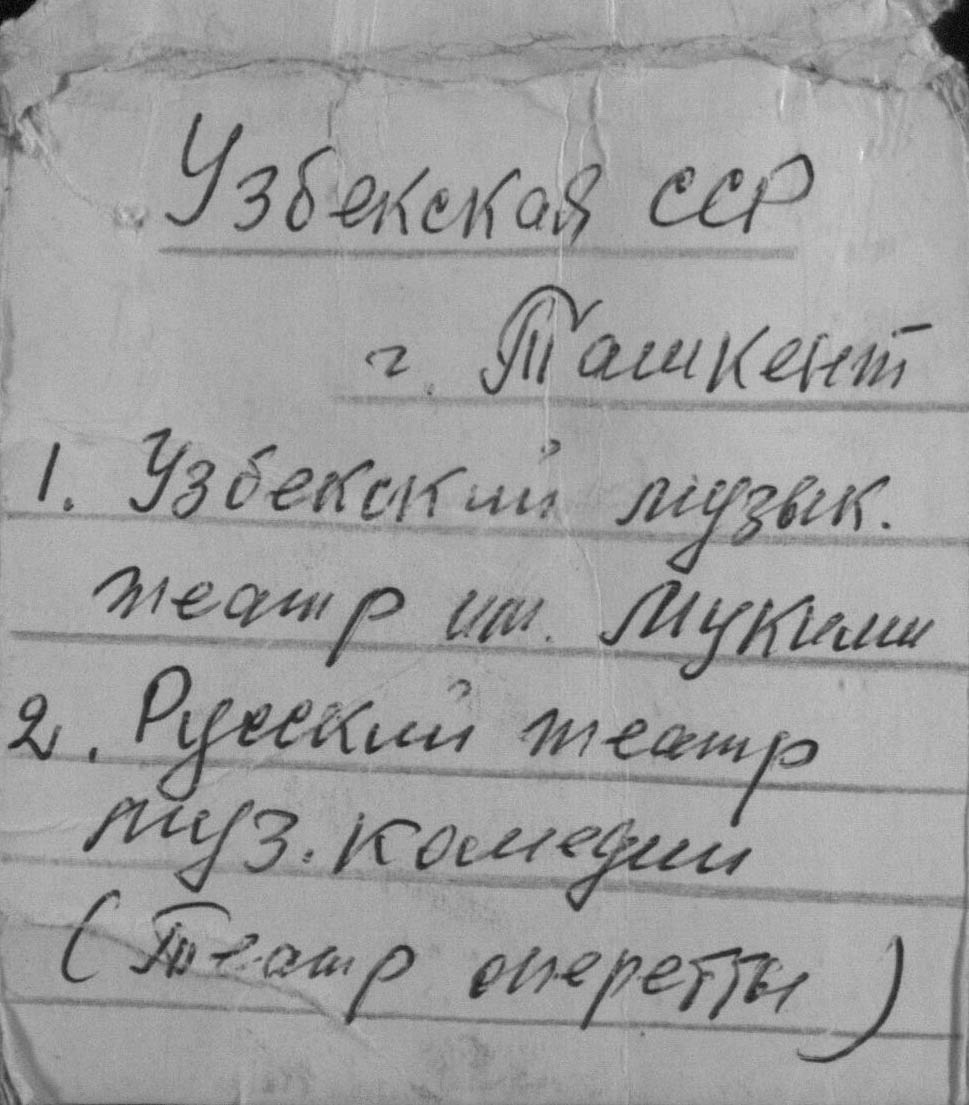 Узбекская ССР
г. Ташкент
1. Узбекский музык.
театр им. Мукими
2. Русский театр
муз. комедии
(Театр оперетты)